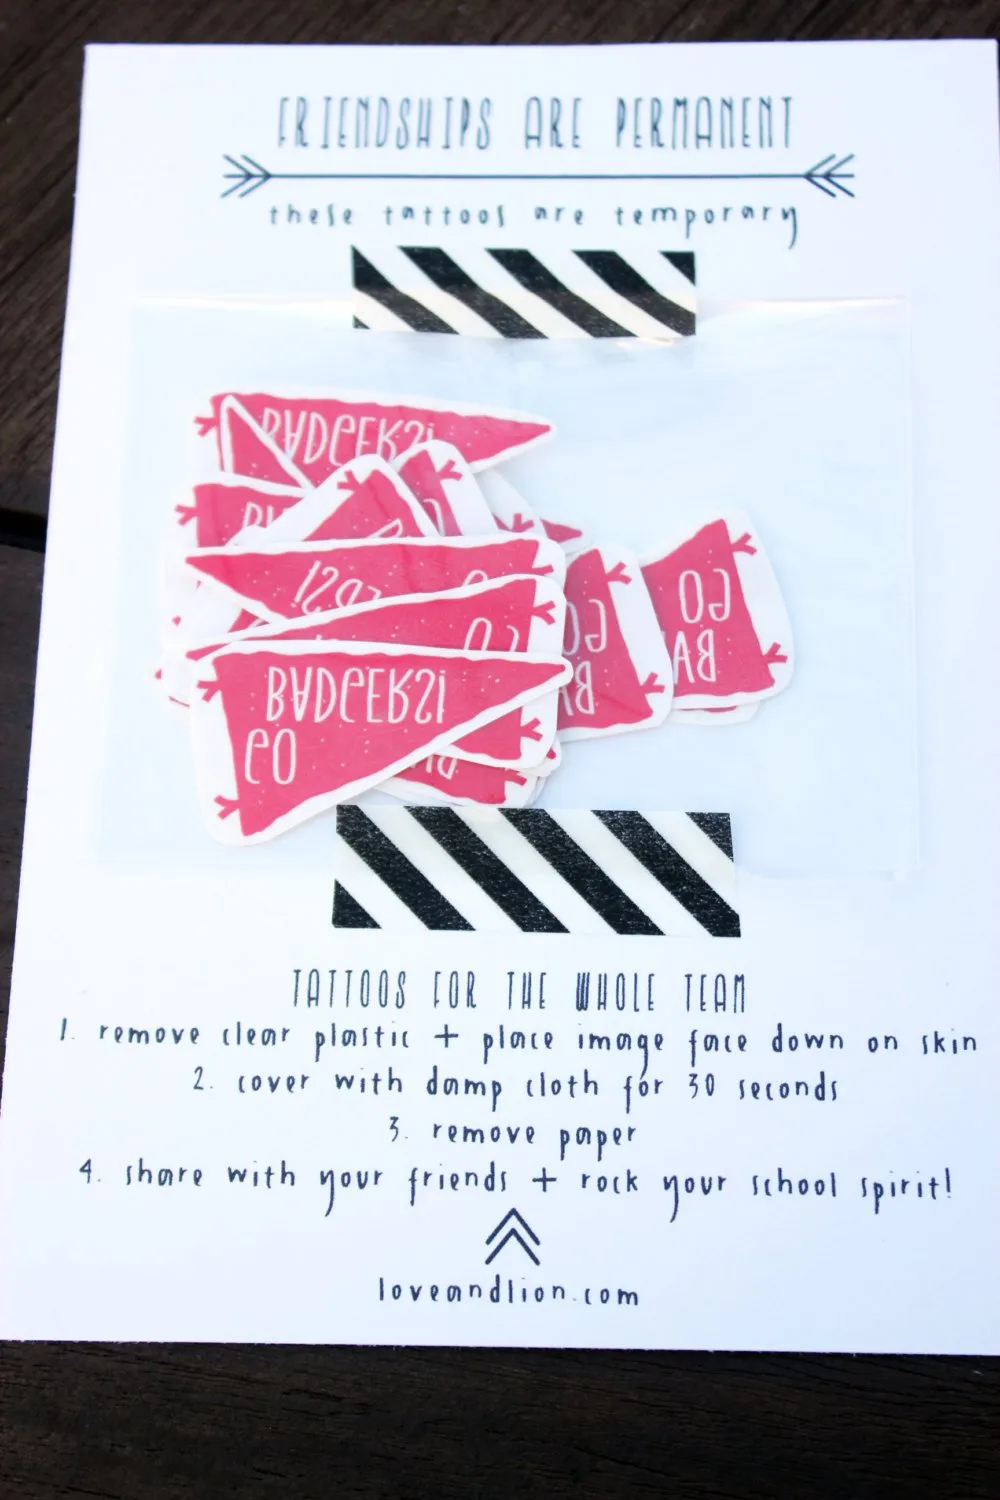 FRIENDSHIPS ARE PERMANENT
these tattoos are temporary
BADGERS!
BADGERS!
GO
GO
BA
GO
BA
TATTOOS FOR THE WHOLE TEAM
1. remove clear plastic + place image face down on skin
2. cover with damp cloth for 30 seconds
3. remove paper
4. share with your friends + rock your school spirit!
loveandlion.com